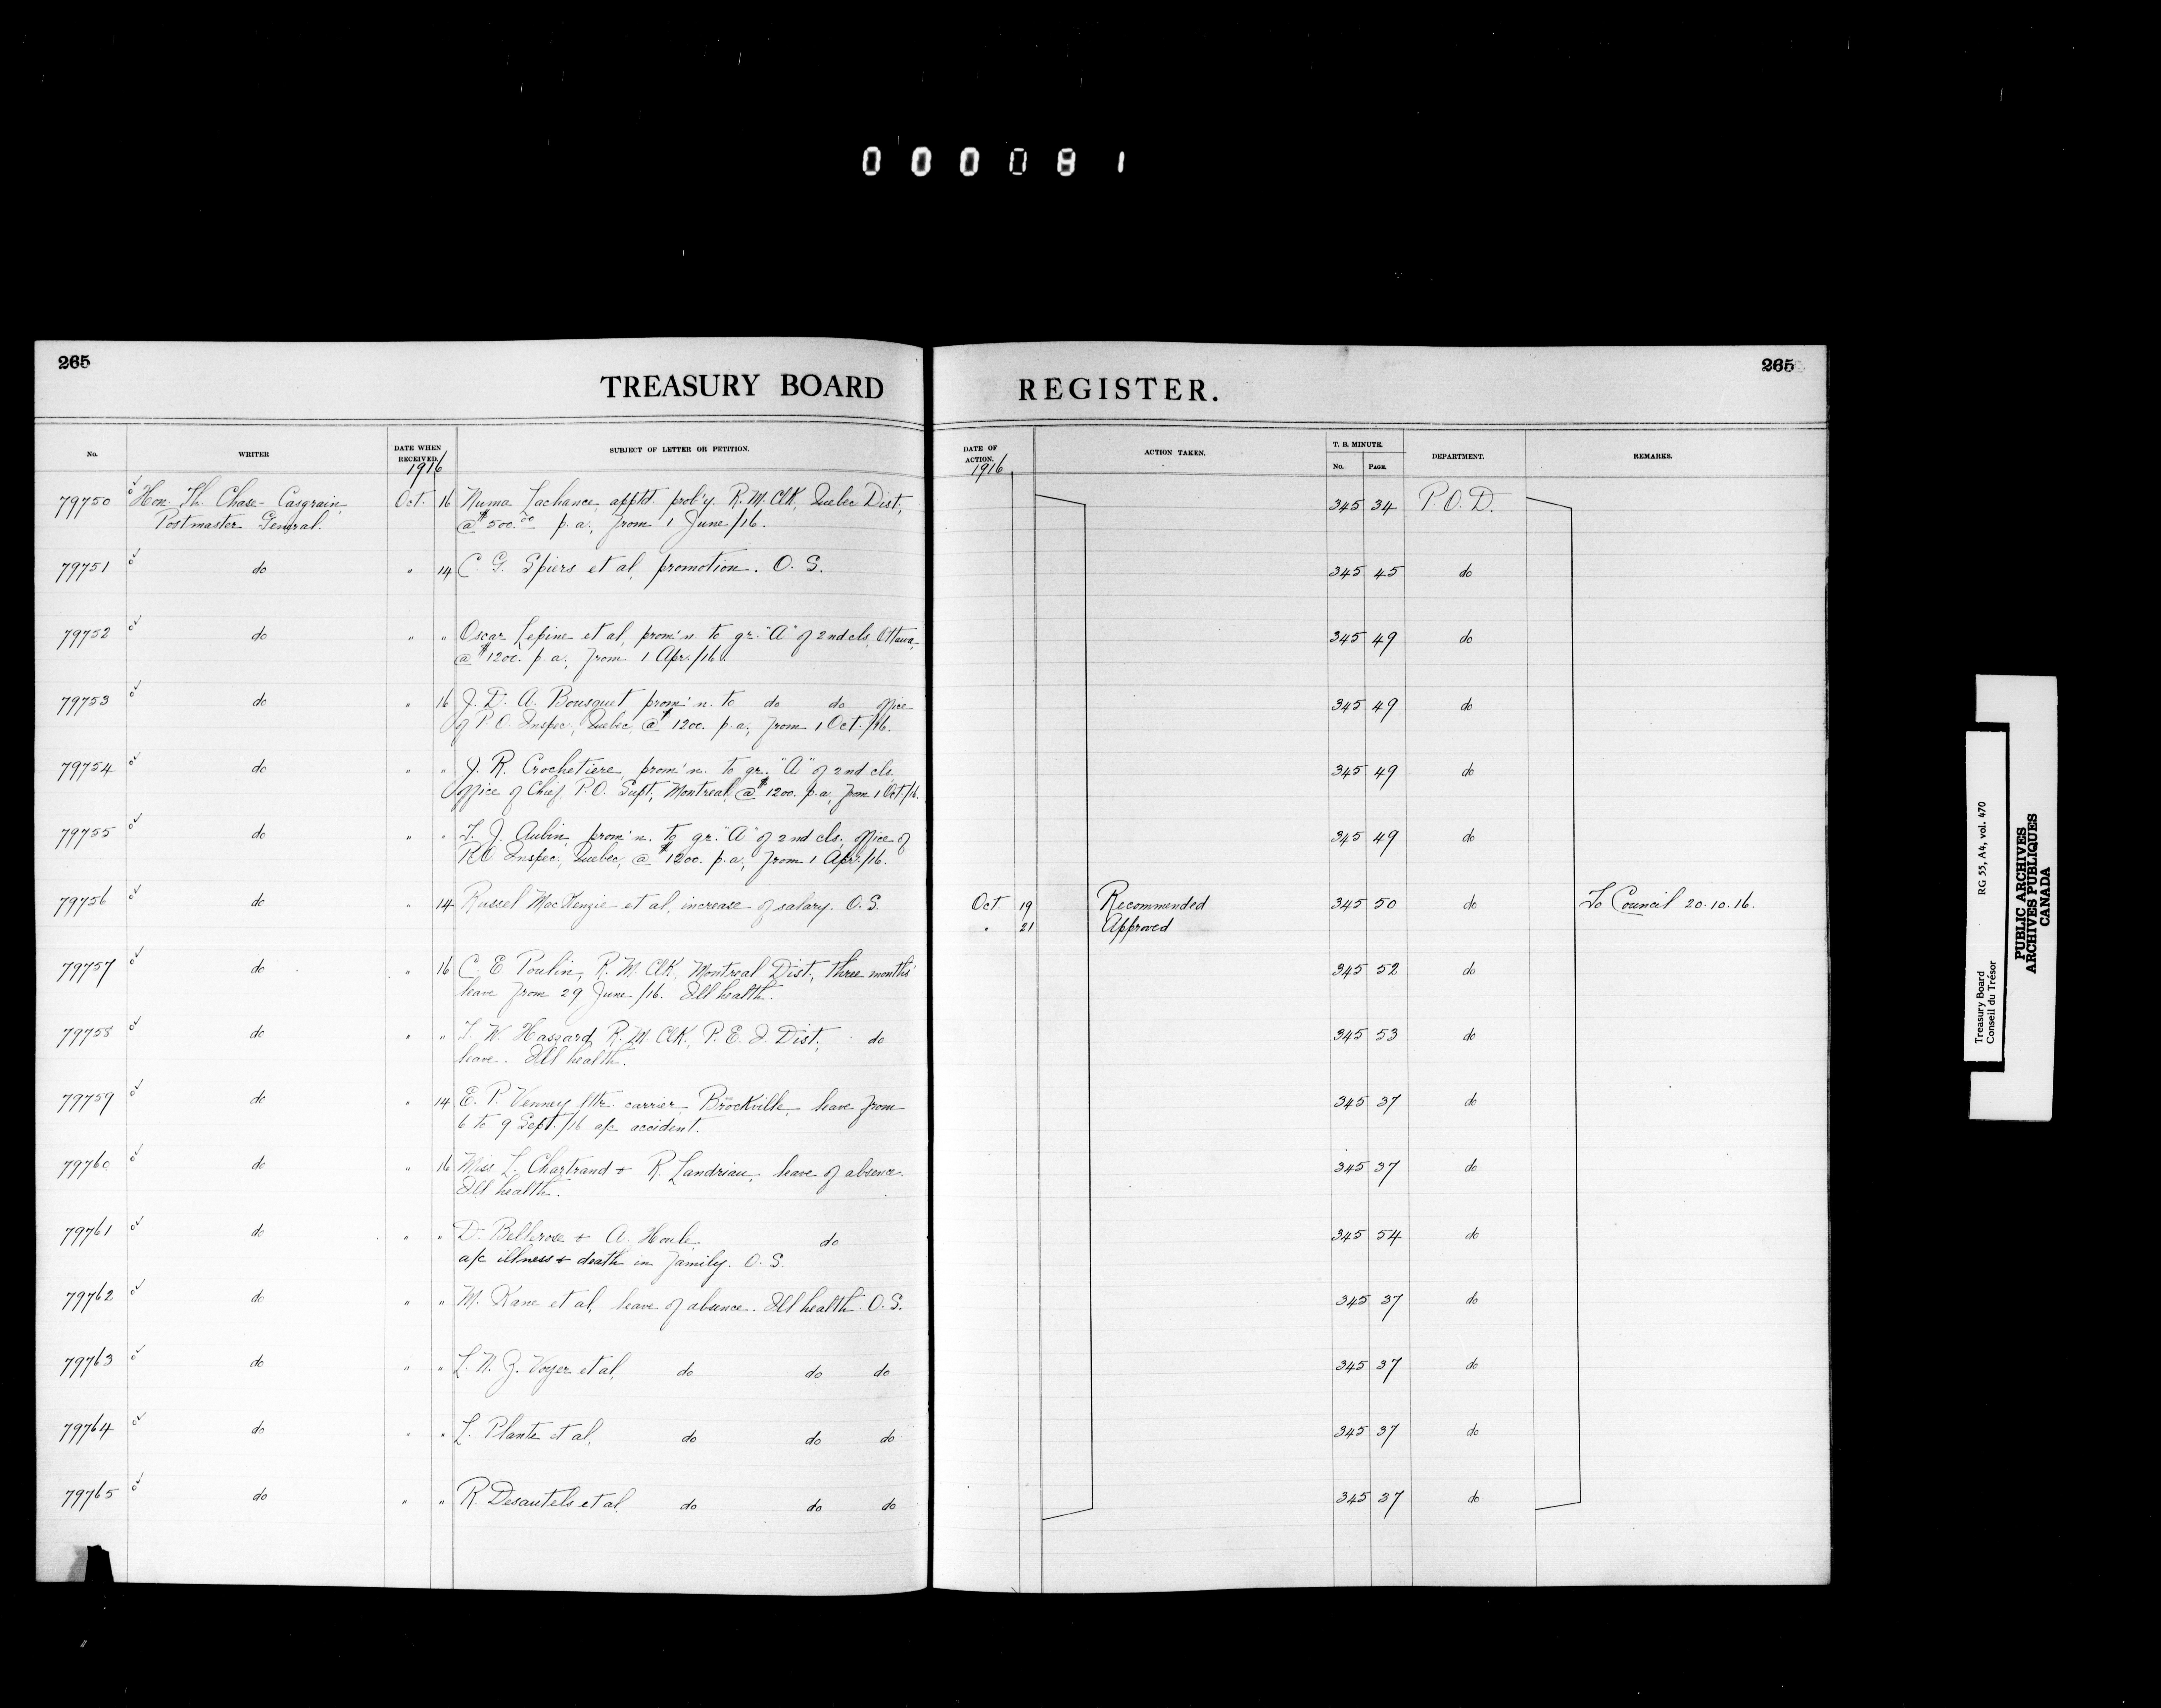 000081
265
265
TREASURY BOARD REGISTER.
No. WRITER DATE WHEN RECEIVED. SUBJECT OF LETTER OR PETITION. DATE OF ACTION. ACTION TAKEN. T. B. MINUTE. No. PAGE. DEPARTMENT. REMARKS.
1916 1916
79750 Hon. Th. Chase-Casgrain, Oct. 16 Numa Lachance, apptd. prob'y. R. M. Clk, Quebec Dist., 345 34 P.O.D.
Postmaster General. @ $500.00 p.a., from 1 June/16.
79751 do " 14 C. G. Spiers et al, promotion. O. S. 345 45 do
79752 do " " Oscar Lepine et al, prom'n. to gr. "A" of 2nd cls, Ottawa, 345 49 do
@ $1200. p.a., from 1 Apr./16.
79753 do " 16 J. D. A. Bousquet prom'n. to do do office 345 49 do
of P.O. Inspec., Quebec, @ $1200. p.a., from 1 Oct./16.
79754 do " " J. R. Crochetiere, prom'n. to gr. "A" of 2nd cls. 345 49 do
Office of Chief P.O. Supt., Montreal, @ $1200. p.a., from 1 Oct./16.
79755 do " " T. J. Aubin, prom'n. to gr. "A" of 2nd cls, office of 345 49 do
P.O. Inspec., Quebec, @ $1200. p.a., from 1 Apr./16.
79756 do " 14 Russel MacKenzie et al, increase of salary. O.S. Oct 19 Recommended 345 50 do To Council 20.10.16.
" 21 Approved
79757 do " 16 C. E. Poulin, R. M. Clk, Montreal Dist., three months' 345 52 do
leave from 29 June/16. Ill health.
79758 do " " T. W. Haszard, R. M. Clk, P. E. I. Dist., do 345 53 do
leave. Ill health.
79759 do " 14 E. P. Venney, lttr. carrier, Brockville, leave from 345 37 do
6 to 9 Sept./16 a/c accident.
79760 do " 16 Miss L. Chartrand & R. Landriau, leave of absence. 345 37 do
Ill health.
79761 do " " D. Bellerose & A. Houle do 345 54 do
a/c illness & death in family. O. S.
79762 do " " M. Kane et al, leave of absence. Ill health. O.S. 345 37 do
79763 do " " L. N. J. Voyer et al, do do do 345 37 do
79764 do " " L. Plante et al, do do do 345 37 do
79765 do " " R. Desautels et al, do do do 345 37 do
Treasury Board RG 55, A4, vol. 470
Conseil du Trésor
PUBLIC ARCHIVES
ARCHIVES PUBLIQUES
CANADA